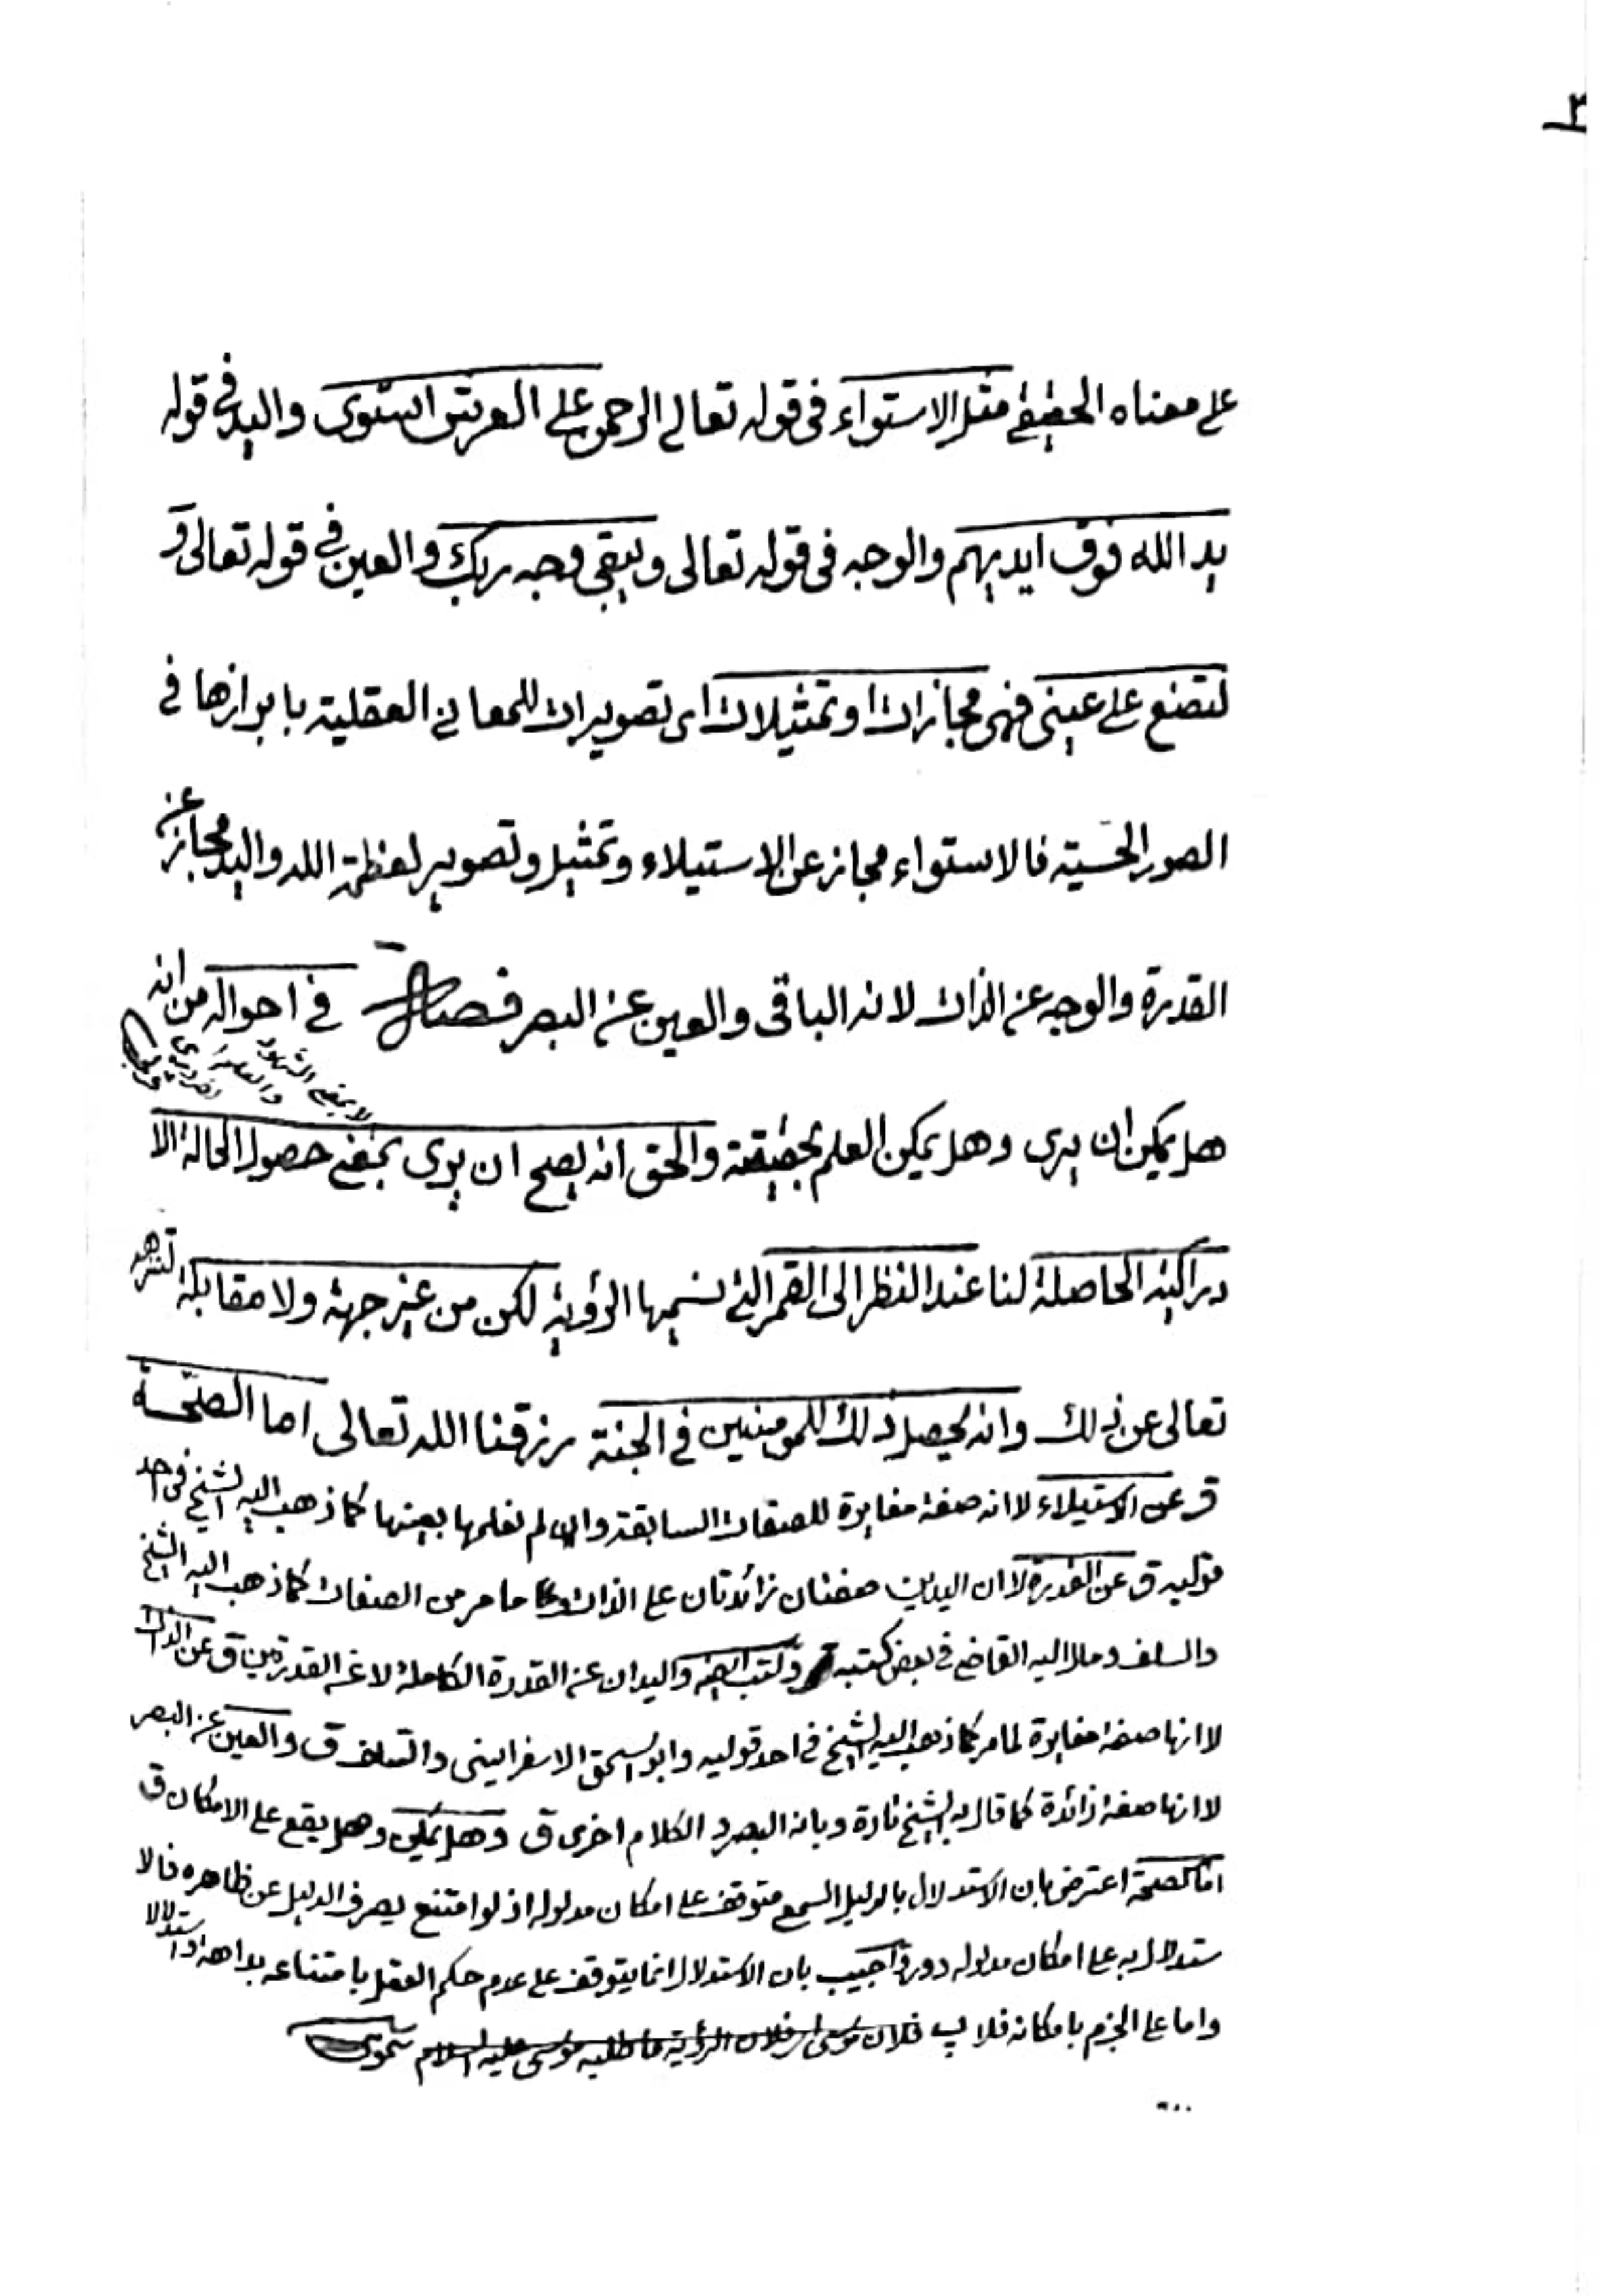 ٣
على معناه الحقيقي مثل الاستواء في قوله تعالى الرحمن على العرش استوى واليد في قوله
يد الله فوق ايديهم والوجه في قوله تعالى ويبقى وجه ربك والعين في قوله تعالى و
لتصنع على عيني فهي مجازات او تمثيلات اى تصويرات للمعاني العقلية بابرازها في
الصور الحسية فالاستواء مجاز عن الاستيلاء وتمثيل وتصوير لعظمة الله واليد مجاز عن
القدرة والوجه عن الذات لانه الباقي والعين عن البصر فصل في احواله من انه
لا بمعنى الشهود
هل يمكن ان يرى وهل يمكن العلم بحقيقته والحق انه يصح ان يرى بمعنى حصول الحالة الا
دراكية الحاصلة لنا عند النظر الى القمر التي نسميها الرؤية لكن من غير جهة ولا مقابلة لتنزهه
تعالى عن ذلك وانه يحصل ذلك للمومنين في الجنة رزقنا الله تعالى اما الصحة
ق عن الاستيلاء لا انه صفة مغايرة للصفات السابقة وان لم نعلمها بعينها كما ذهب اليه الشيخ في احد
قوليه ق عن القدرة لا ان اليدين صفتان زائدتان على الذات وعلى ما مر من الصفات كما ذهب اليه الشيخ
والسلف ومال اليه القاضي في بعض كتبه وكتب ايضا واليدان عن القدرة الكاملة لا عن القدرتين ق عن الذات
لا انها صفة مغايرة لما مر كما ذهب اليه الشيخ في احد قوليه وابو اسحق الاسفرايني والسلف ق والعين عن البصر
لا انها صفة زائدة كما قال به الشيخ تارة وبانه البصر الكلام اخرى ق وهل يمكن وهل يقع على الامكان ق
اما الصحة اعترض بان الاستدلال بالدليل السمع متوقف على امكان مدلوله اذ لو امتنع يصرف الدليل عن ظاهره فالا
ستدلال به على امكان مدلوله دور واجيب بان الاستدلال انما يتوقف على عدم حكم العقل بامتناعه بداهة او استدلالا
واما على الجزم بامكانه فلا فلان الرؤية ما طلبه موسى عليه السلام